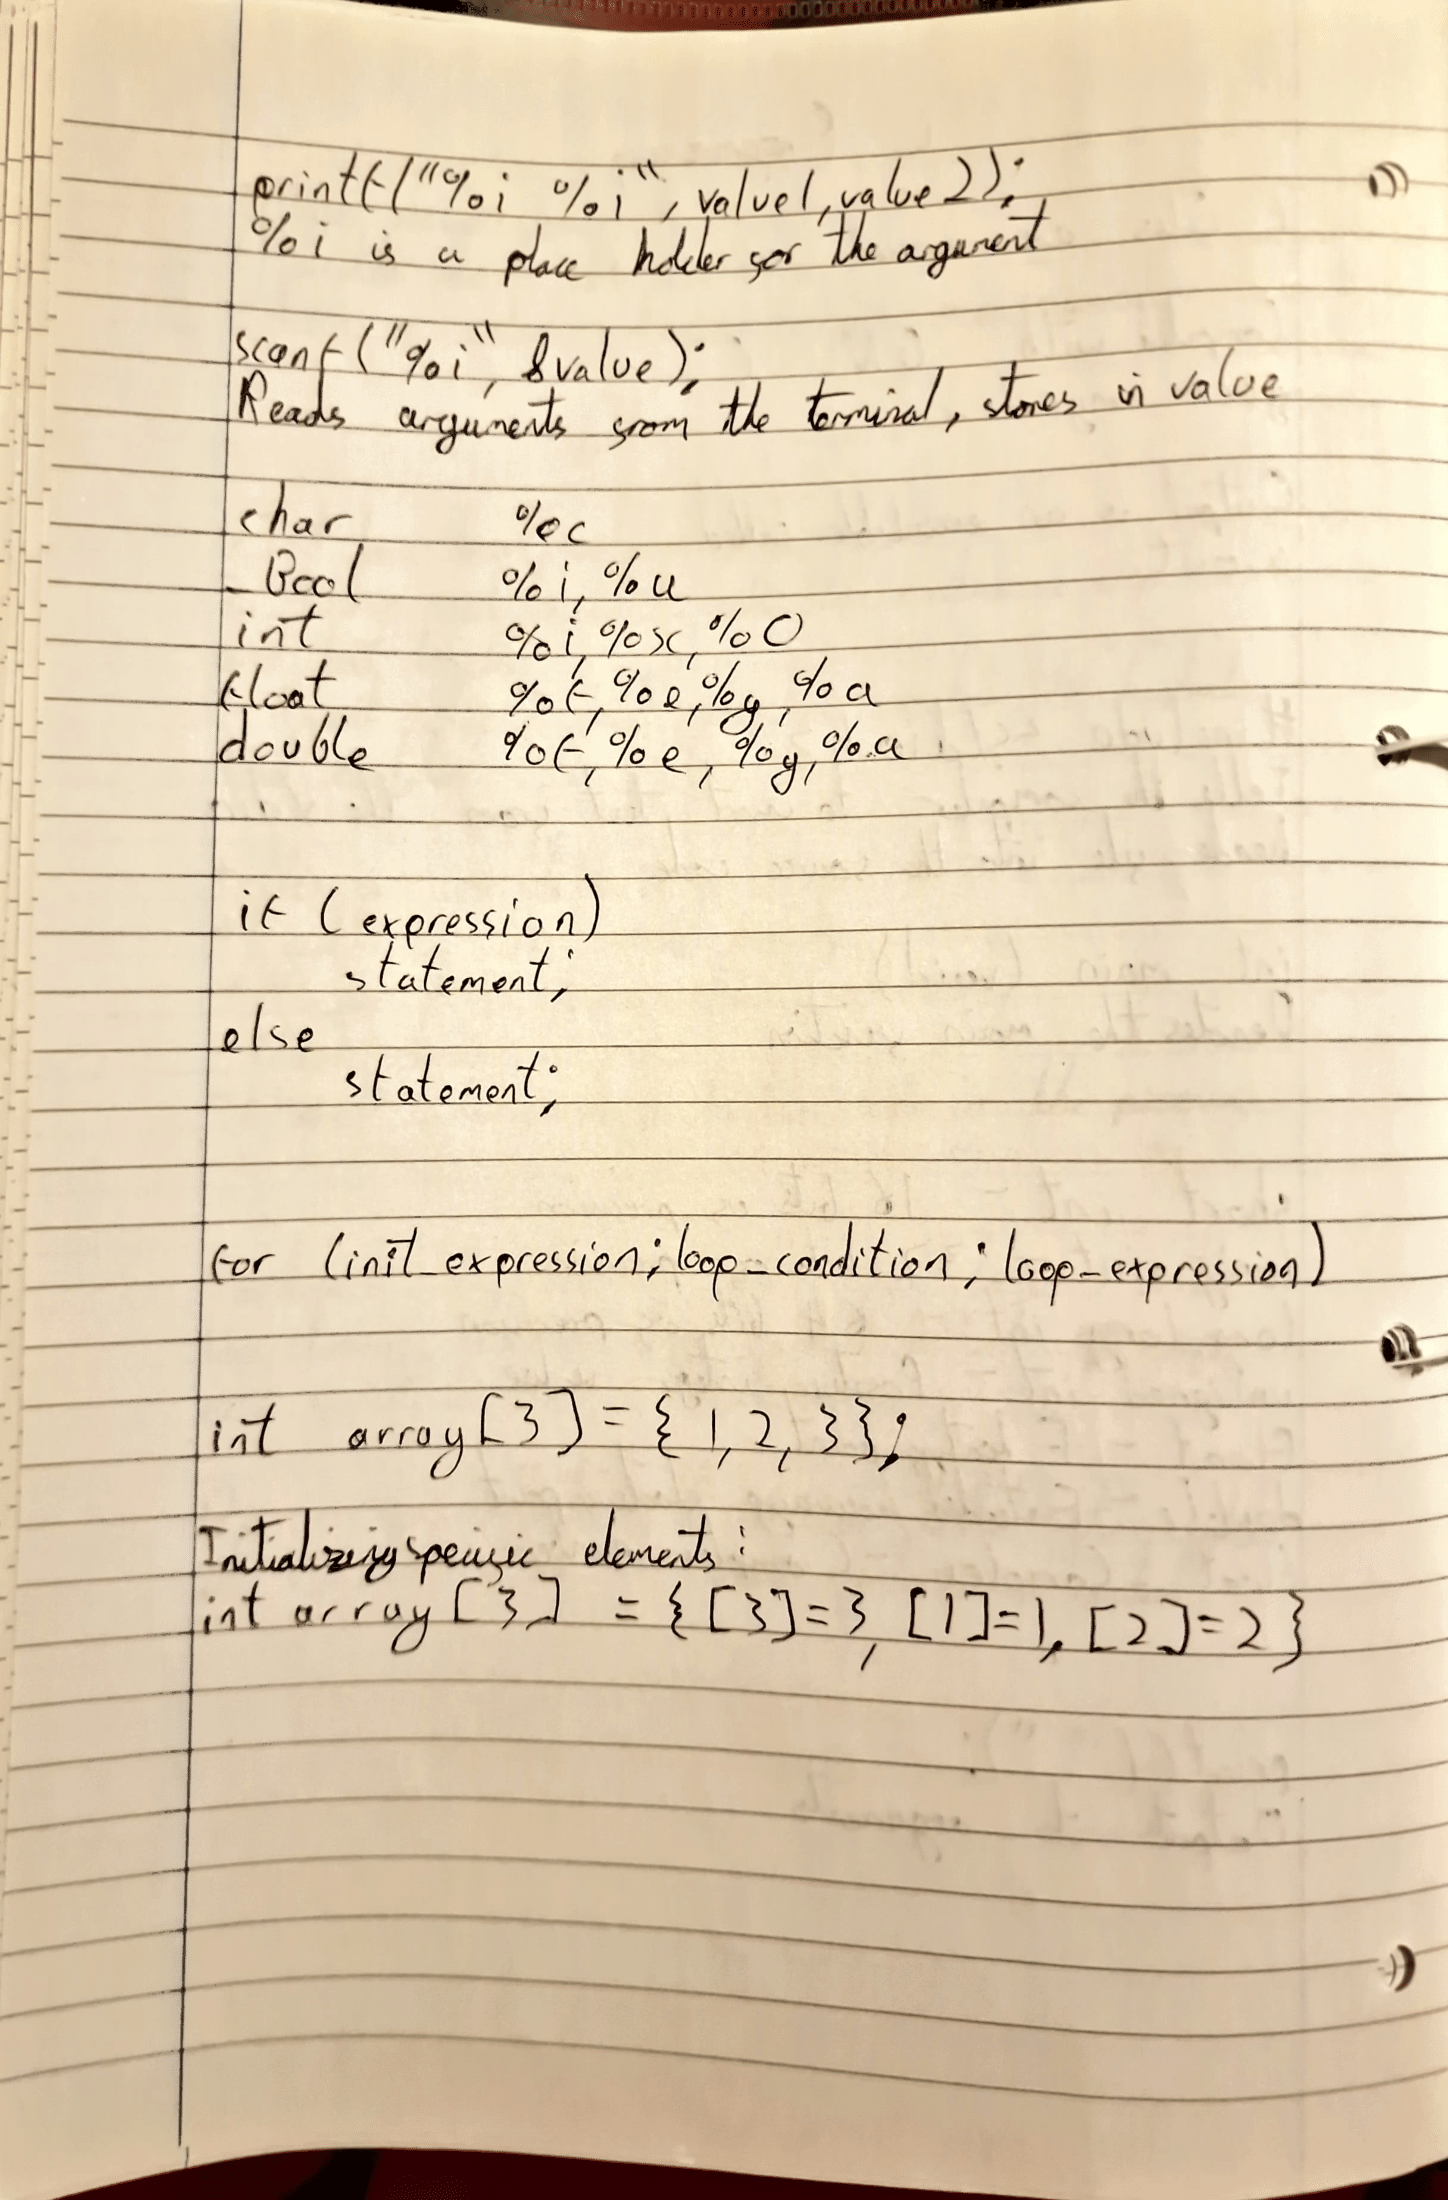 printf("%i %i", value1, value2);
%i is a place holder for the argument
scanf("%i", &value);
Reads arguments from the terminal, stores in value
char %c
_Bool %i, %u
int %i, %x, %o
float %f, %e, %g, %a
double %f, %e, %g, %a
if (expression)
statement;
else
statement;
for (init_expression; loop_condition; loop_expression)
int array[3] = {1, 2, 3};
Initializing specific elements:
int array[3] = {[3]=3, [1]=1, [2]=2}